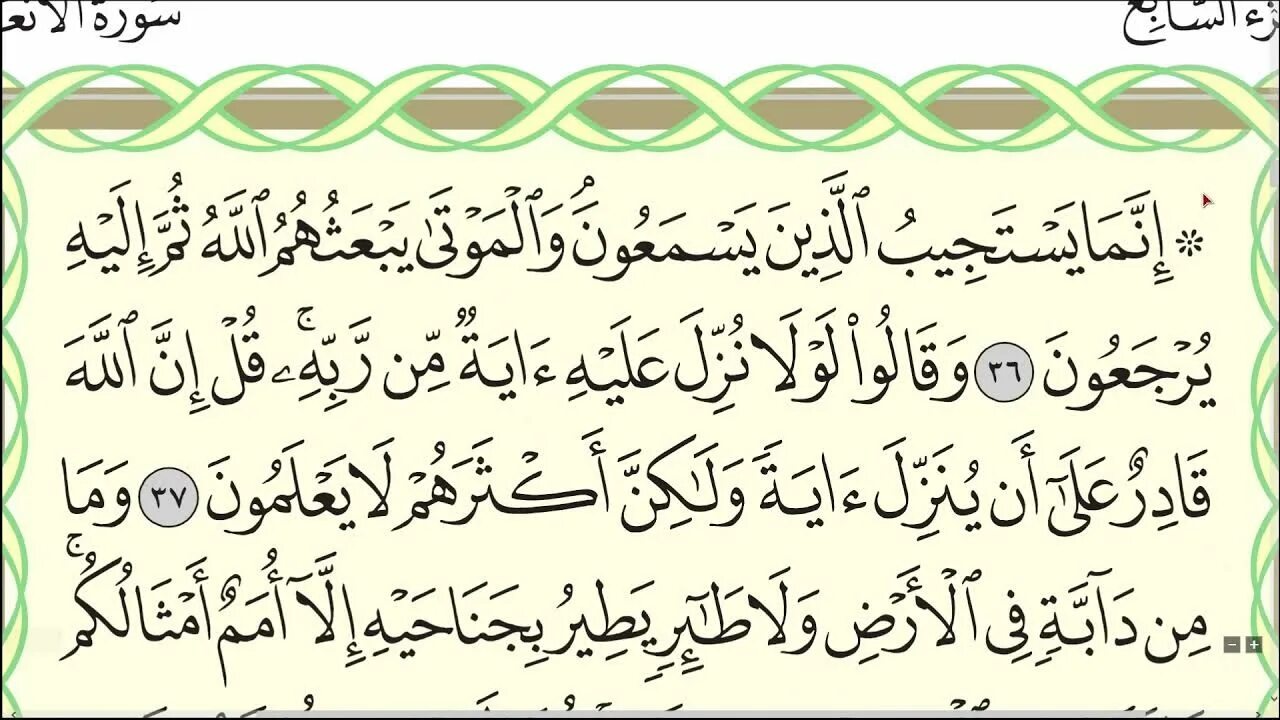 سورة الأنعـ
الجزء السابع
۞ إِنَّمَا يَسْتَجِيبُ ٱلَّذِينَ يَسْمَعُونَۘ وَٱلْمَوْتَىٰ يَبْعَثُهُمُ ٱللَّهُ ثُمَّ إِلَيْهِ
يُرْجَعُونَ ٣٦ وَقَالُوا۟ لَوْلَا نُزِّلَ عَلَيْهِ ءَايَةٌ مِّن رَّبِّهِۦۚ قُلْ إِنَّ ٱللَّهَ
قَادِرٌ عَلَىٰٓ أَن يُنَزِّلَ ءَايَةً وَلَـٰكِنَّ أَكْثَرَهُمْ لَا يَعْلَمُونَ ٣٧ وَمَا
مِن دَآبَّةٍ فِى ٱلْأَرْضِ وَلَا طَـٰٓئِرٍ يَطِيرُ بِجَنَاحَيْهِ إِلَّآ أُمَمٌ أَمْثَالُكُمۚ